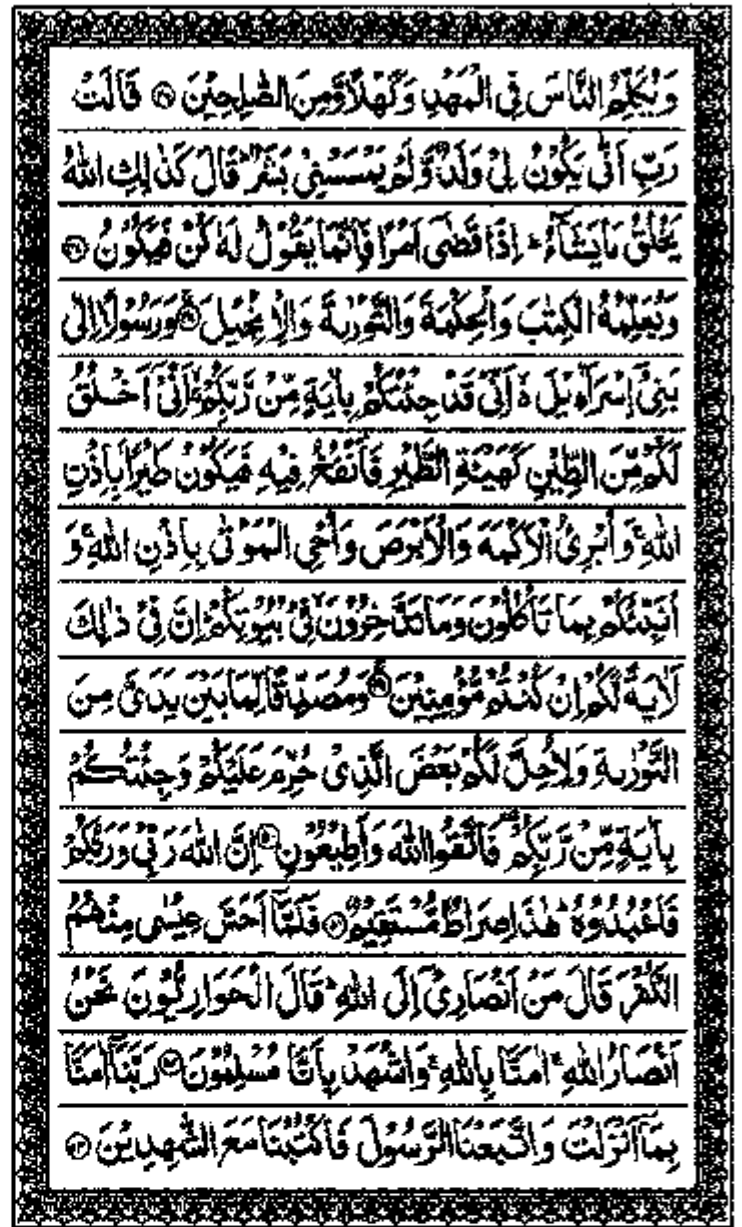 وَيُكَلِّمُ النَّاسَ فِي الْمَهْدِ وَكَهْلًا وَّمِنَ الصّٰلِحِيْنَ ۝ قَالَتْ
رَبِّ اَنّٰى يَكُوْنُ لِيْ وَلَدٌ وَّلَمْ يَمْسَسْنِيْ بَشَرٌ ؕ قَالَ كَذٰلِكِ اللّٰهُ
يَخْلُقُ مَا يَشَآءُ ؕ اِذَا قَضٰۤى اَمْرًا فَاِنَّمَا يَقُوْلُ لَهٗ كُنْ فَيَكُوْنُ ۝
وَيُعَلِّمُهُ الْكِتٰبَ وَالْحِكْمَةَ وَالتَّوْرٰىةَ وَالْاِنْجِيْلَ ۝ وَرَسُوْلًا اِلٰى
بَنِيْۤ اِسْرَآءِيْلَ ۙ اَنِّيْ قَدْ جِئْتُكُمْ بِاٰيَةٍ مِّنْ رَّبِّكُمْ ۙ اَنِّيْۤ اَخْلُقُ
لَكُمْ مِّنَ الطِّيْنِ كَهَيْئَةِ الطَّيْرِ فَاَنْفُخُ فِيْهِ فَيَكُوْنُ طَيْرًا بِاِذْنِ
اللّٰهِ ۚ وَاُبْرِئُ الْاَكْمَهَ وَالْاَبْرَصَ وَاُحْيِ الْمَوْتٰى بِاِذْنِ اللّٰهِ ۚ وَ
اُنَبِّئُكُمْ بِمَا تَاْكُلُوْنَ وَمَا تَدَّخِرُوْنَ ۙ فِيْ بُيُوْتِكُمْ ؕ اِنَّ فِيْ ذٰلِكَ
لَاٰيَةً لَّكُمْ اِنْ كُنْتُمْ مُّؤْمِنِيْنَ ۝ وَمُصَدِّقًا لِّمَا بَيْنَ يَدَيَّ مِنَ
التَّوْرٰىةِ وَلِاُحِلَّ لَكُمْ بَعْضَ الَّذِيْ حُرِّمَ عَلَيْكُمْ وَجِئْتُكُمْ
بِاٰيَةٍ مِّنْ رَّبِّكُمْ ۟ فَاتَّقُوا اللّٰهَ وَاَطِيْعُوْنِ ۝ اِنَّ اللّٰهَ رَبِّيْ وَرَبُّكُمْ
فَاعْبُدُوْهُ ؕ هٰذَا صِرَاطٌ مُّسْتَقِيْمٌ ۝ فَلَمَّاۤ اَحَسَّ عِيْسٰى مِنْهُمُ
الْكُفْرَ قَالَ مَنْ اَنْصَارِيْۤ اِلَى اللّٰهِ ؕ قَالَ الْحَوَارِيُّوْنَ نَحْنُ
اَنْصَارُ اللّٰهِ ۚ اٰمَنَّا بِاللّٰهِ ۚ وَاشْهَدْ بِاَنَّا مُسْلِمُوْنَ ۝ رَبَّنَاۤ اٰمَنَّا
بِمَاۤ اَنْزَلْتَ وَاتَّبَعْنَا الرَّسُوْلَ فَاكْتُبْنَا مَعَ الشّٰهِدِيْنَ ۝